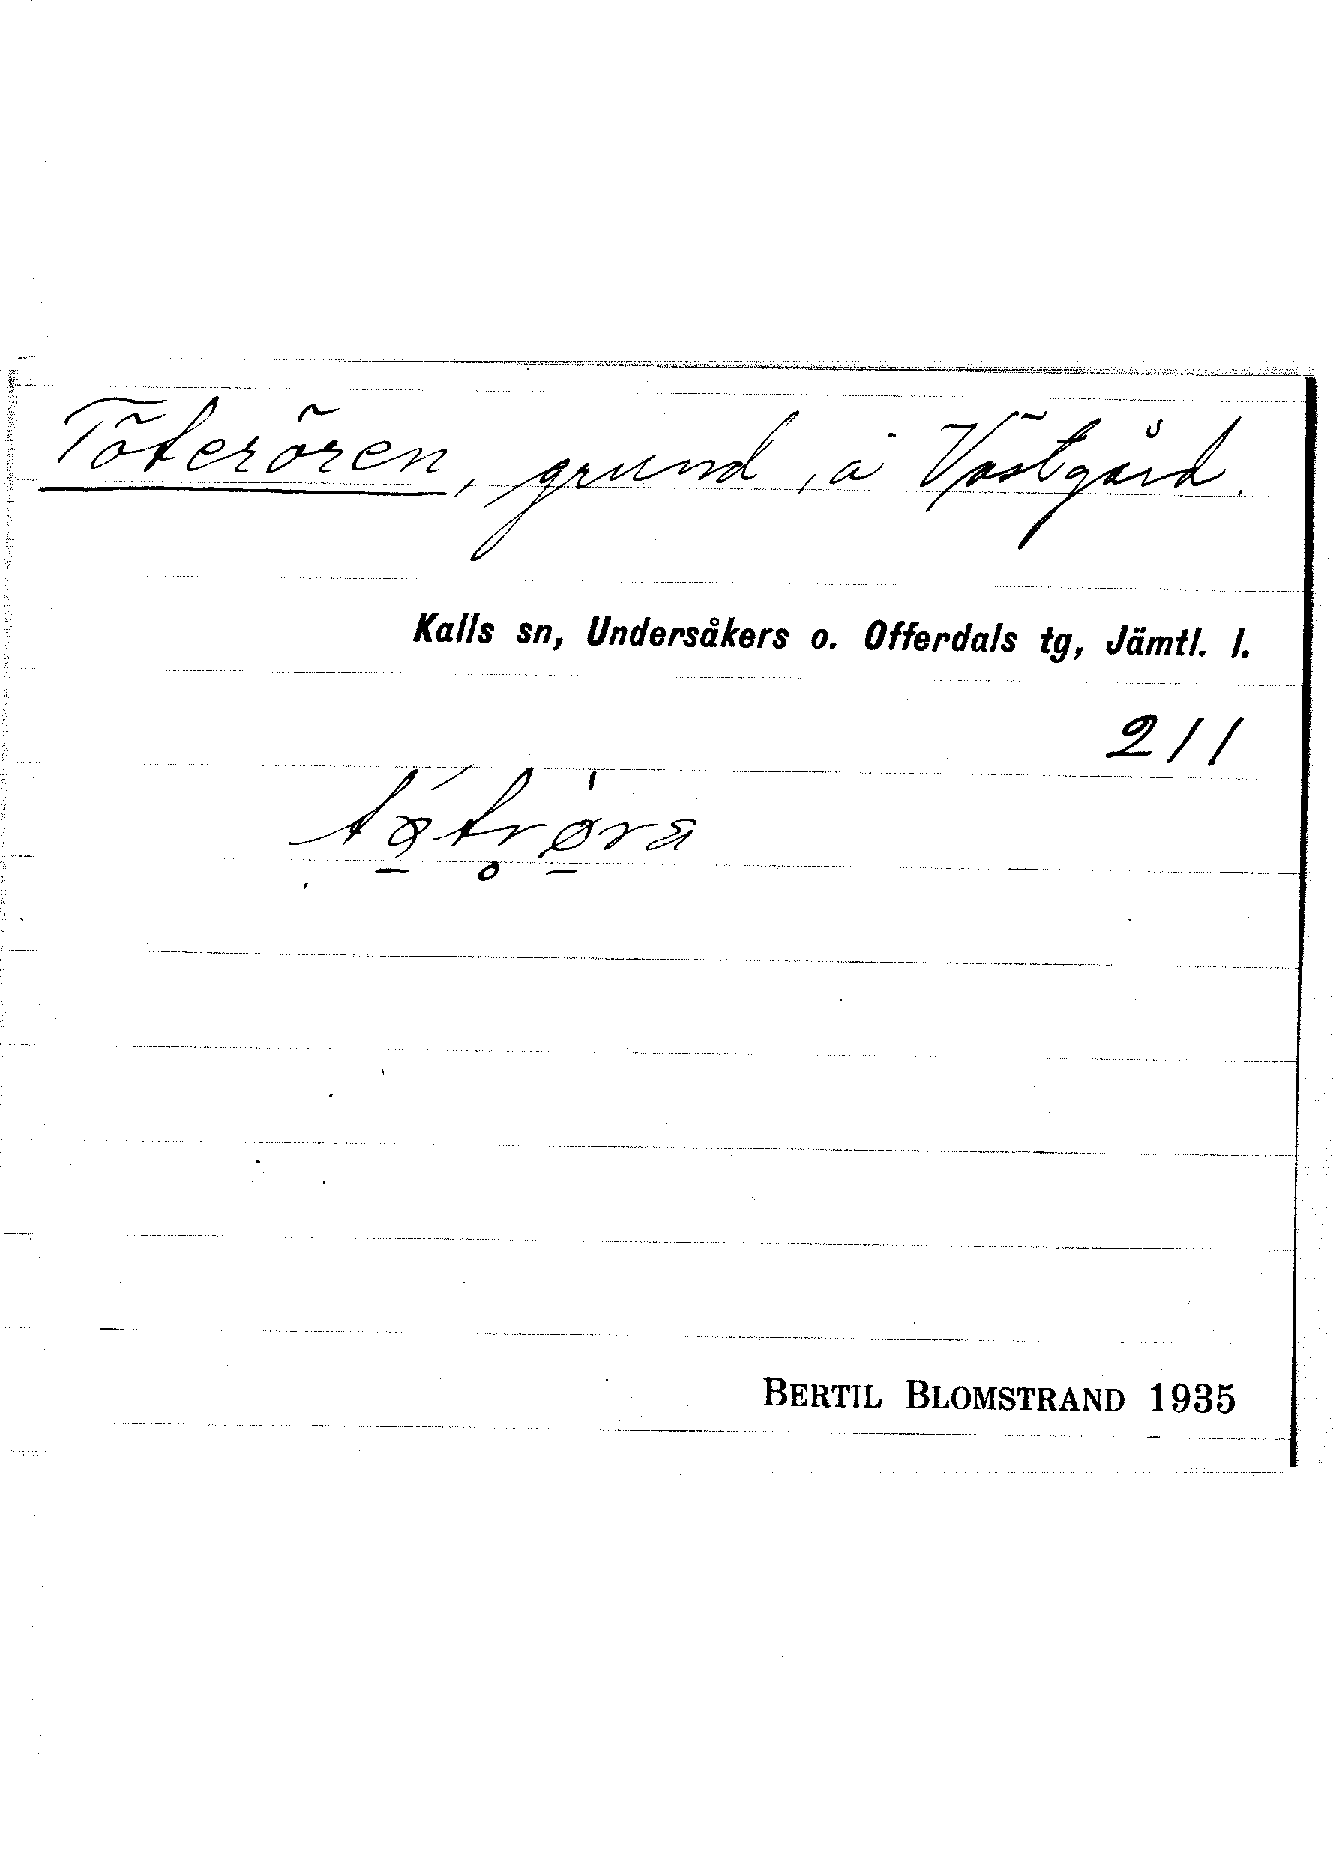 Töterören, grund, å Västgård.
Kalls sn, Undersåkers o. Offerdals tg, Jämtl. l.
211
BERTIL BLOMSTRAND 1935